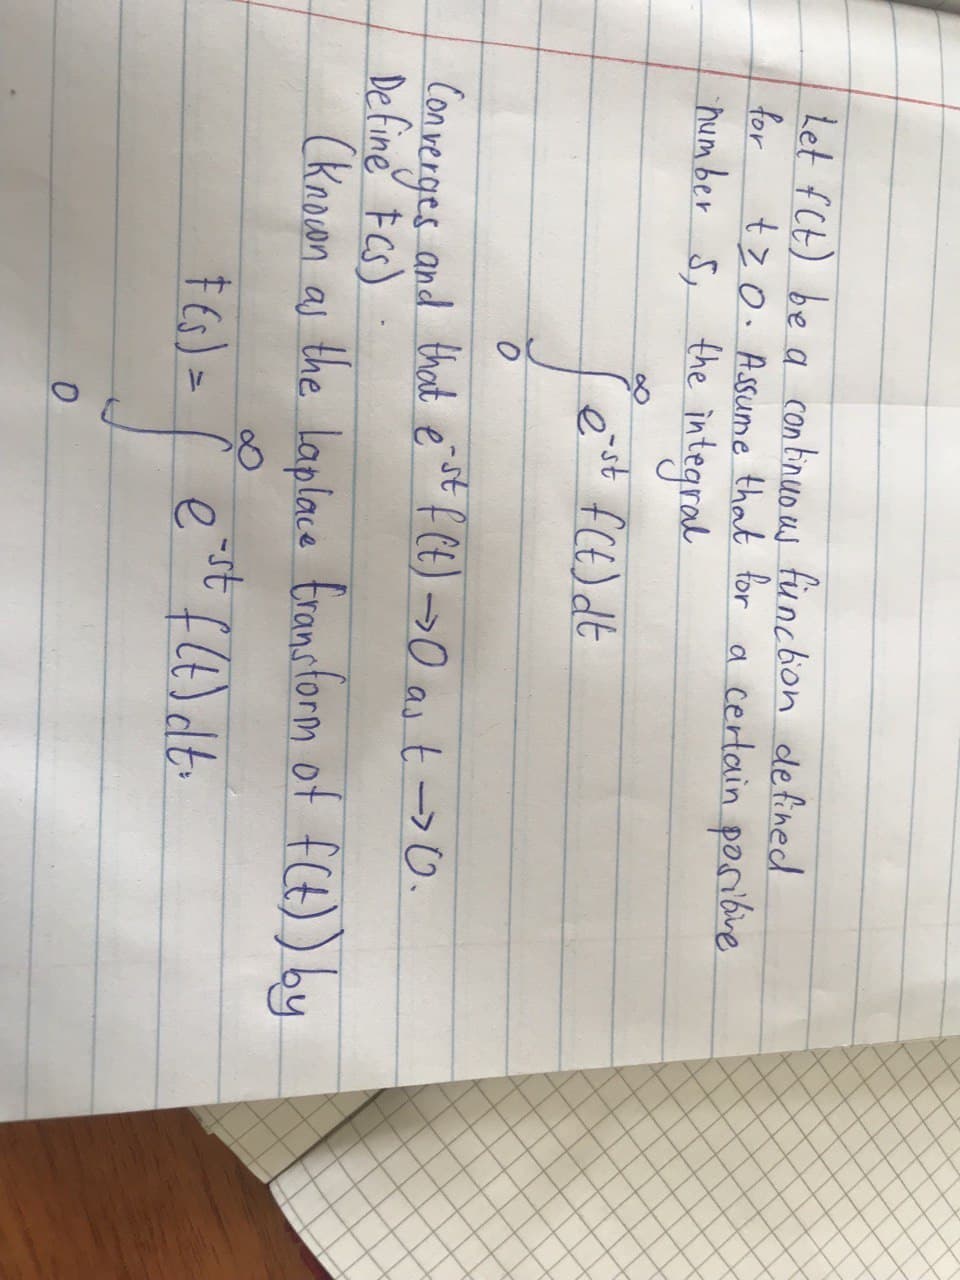 Let f(t) be a continuous function defined
for t ≥ 0. Assume that for a certain positive
number s, the integral
∫₀^∞ e^-st f(t) dt
Converges and that e^-st f(t) → 0 as t → 0.
Define F(s).
(Known as the Laplace transform of f(t)) by
F(s) = ∫₀^∞ e^-st f(t) dt.